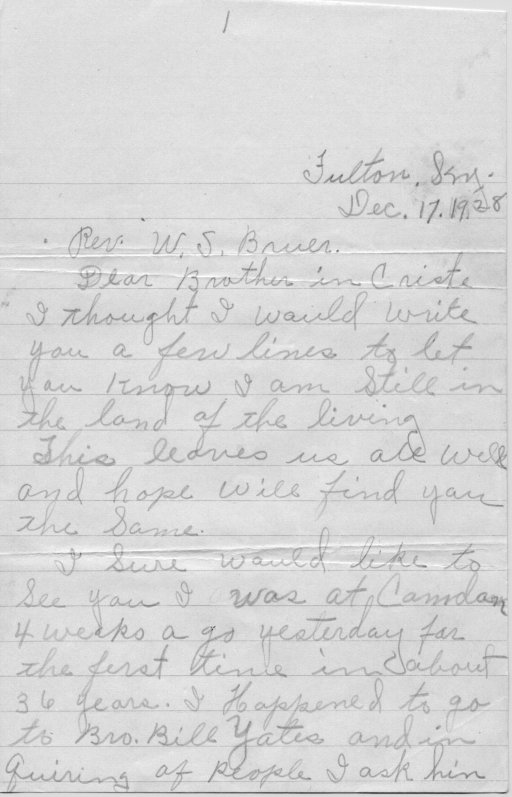 1
Fulton, Ky.
Dec. 17. 1928
Rev. W. S. Bruer.
Dear Brother in Criste
I thought I would write
you a few lines to let
you know I am Still in
the land of the living
This leaves us all well
and hope will find you
the Same.
I Sure would like to
See you I was at Camdan
4 weeks a go yesterday for
the first time in about
36 years. I Happened to go
to Bro. Bill Yates and in
quiring of people I ask him